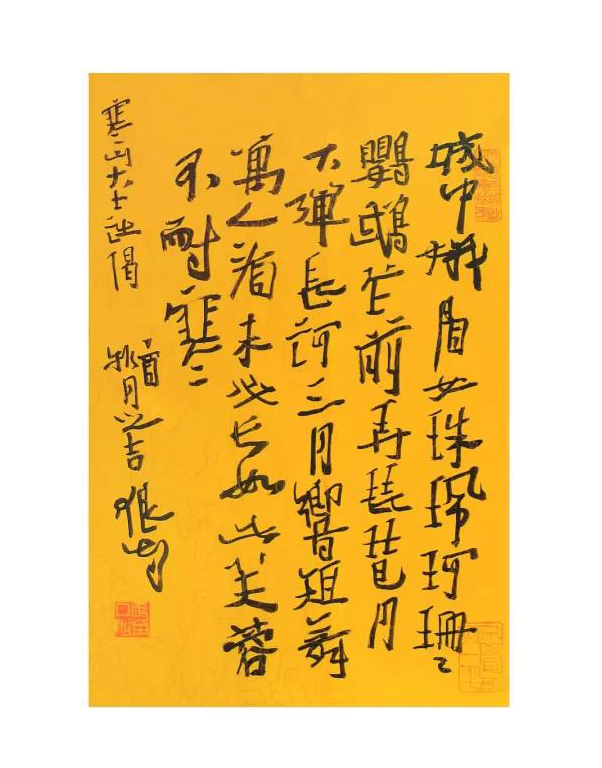 城中娥眉女珠珮珂珊々
鸚鵡花前弄琵琶月
下彈長訶三月響短舞
萬人看未必長如此芙蓉
不耐寒
寒山大士詩偈
月之吉